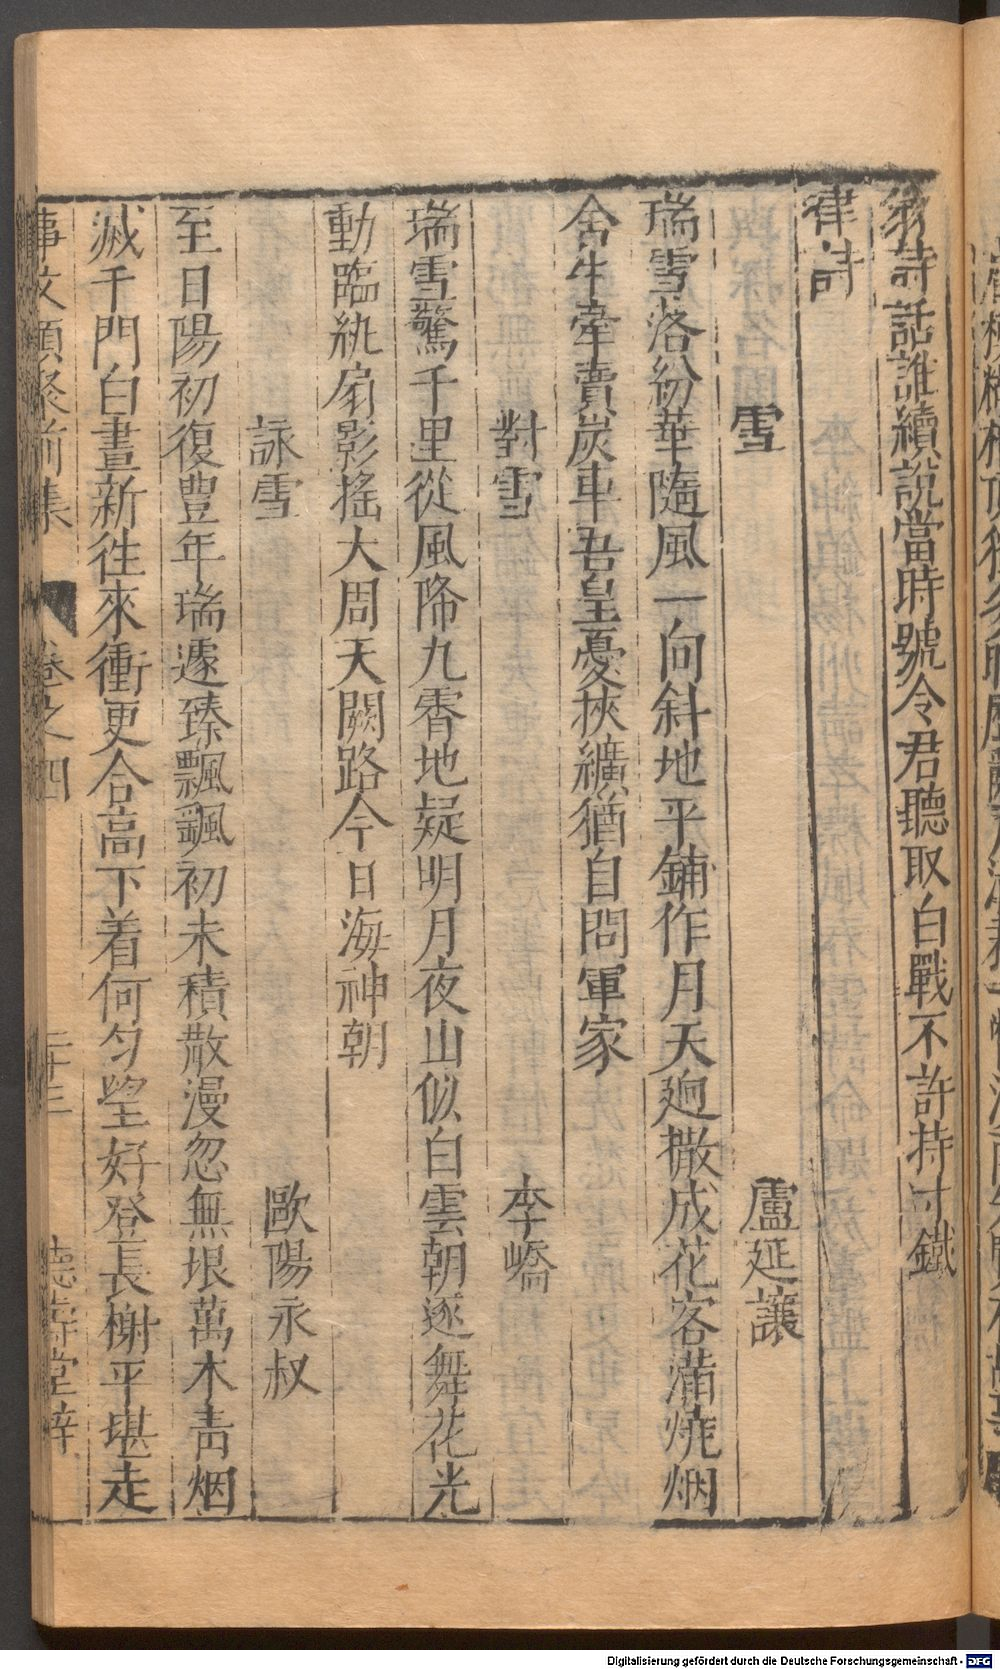 翁詩話誰續說當時號令君聽取白戰不許持寸鐵
律詩
雪 盧延讓
瑞雪落紛華隨風一向斜地平鋪作月天迥撒成花客滿燒烟
舍牛牽賣炭車吾皇憂挾纊猶自問軍家
對雪 李嶠
瑞雪驚千里從風降九霄地疑明月夜山似白雲朝逐舞花光
動臨紈扇影搖大周天闕路今日海神朝
詠雪 歐陽永叔
至日陽初復豊年瑞遽臻飄颻初未積散漫忽無垠萬木青烟
滅千門白晝新往來衝更合高下着何匀望好登長榭平堪走
事文類聚前集 卷之四 二十三 德壽堂梓
Digitalisierung gefördert durch die Deutsche Forschungsgemeinschaft - DFG